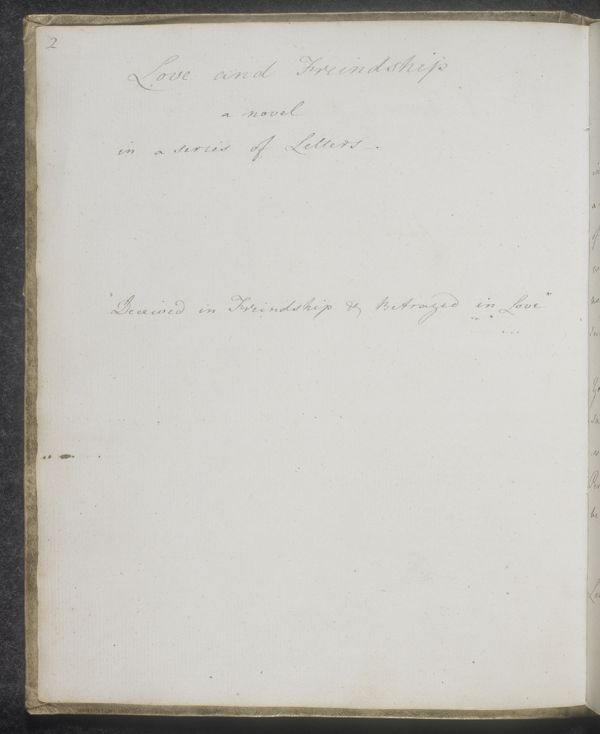 2
Love and Freindship
a novel
in a series of Letters_.
"Deceived in Freindship & Betrayed in Love"